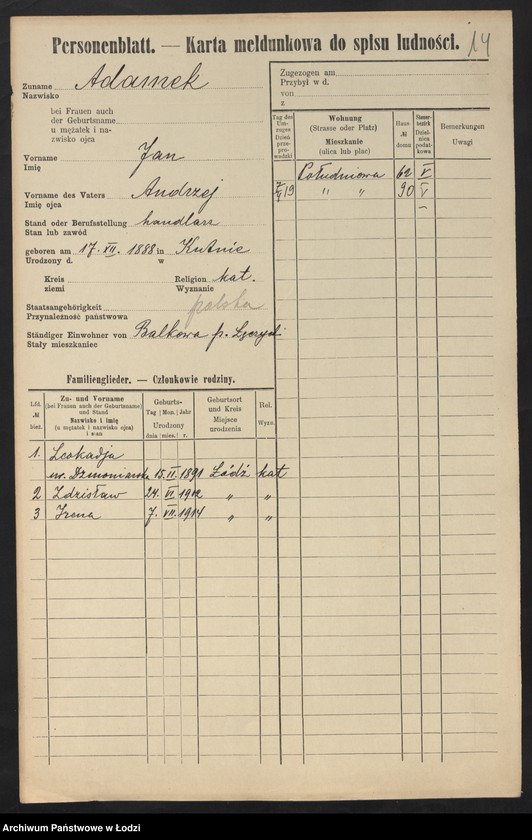 Personenblatt. — Karta meldunkowa do spisu ludności. 14
Zuname
Nazwisko
Adamek
bei Frauen auch
der Geburtsname
u mężatek i na-
zwisko ojca
Vorname
Imię
Jan
Vorname des Vaters
Imię ojca
Andrzej
Stand oder Berufsstellung
Stan lub zawód
handlarz
geboren am 17. VII. 1888 in Kutnie
Urodzony d. w
Kreis
ziemi
Religion kat.
Wyznanie
Staatsangehörigkeit polska
Przynależność państwowa
Ständiger Einwohner von Balkowa p.
Stały mieszkaniec
Zugezogen am
Przybył w d.
von
z
Tag des
Um-
zuges
Dzień
prze-
pro-
wadzki
Wohnung
(Strasse oder Platz)
Mieszkanie
(ulica lub plac)
Haus
№
domu
Steuer-
bezirk
Dziel-
nica
podat-
kowa
Bemerkungen
Uwagi
Południowa 62 V
19 " " 90 V
Familienglieder. — Członkowie rodziny.
Lfd.
№
bież.
Zu- und Vorname
(bei Frauen auch der Geburtsname)
und Stand
Nazwisko i imię
(u mężatek i nazwisko ojca)
i stan
Geburts-
Tag Mon. Jahr
Urodzony
dnia mies. r.
Geburtsort
und Kreis
Miejsce
urodzenia
Rel.
Wyzn.
1. Leokadja
15. II. 1891 Łódź kat
2 Zdzisław 24. VI 1912 " "
3 Irena 7. VII. 1914 " "
Archiwum Państwowe w Łodzi